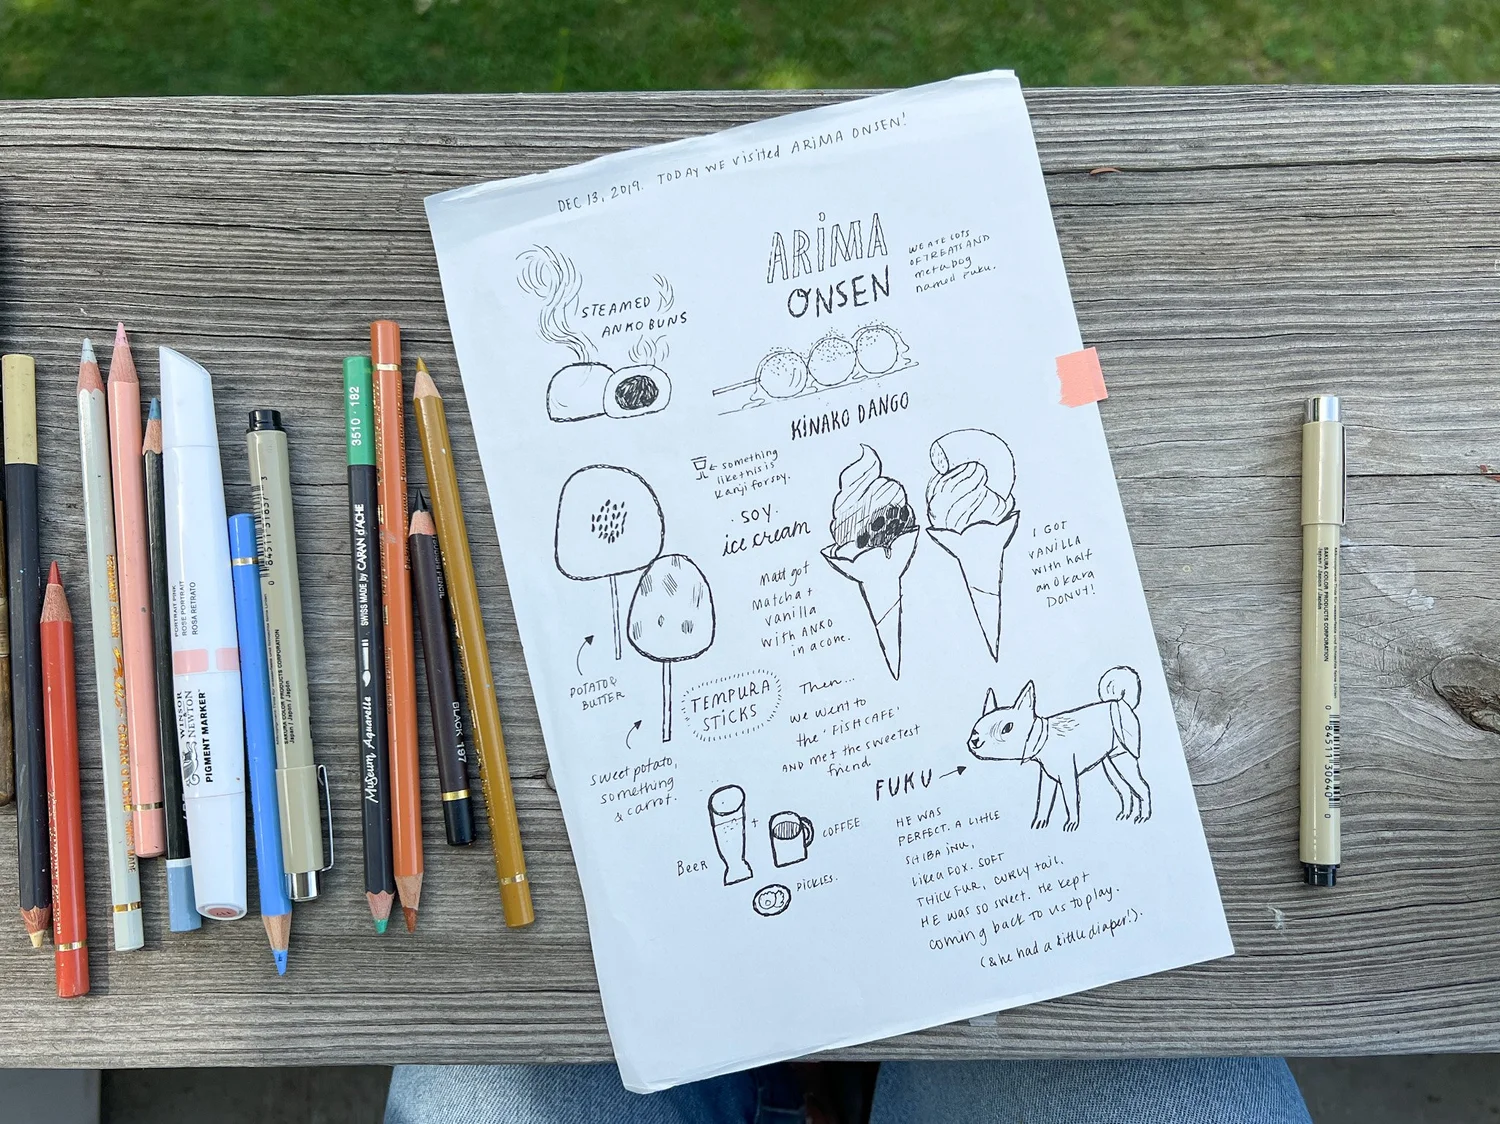 DEC 13, 2019. TODAY WE visited ARIMA ONSEN!
ARIMA
ONSEN
WE ATE LOTS
OF TREATS AND
met a DOG
named FUKU.
STEAMED
ANKO BUNS
KINAKO DANGO
something
like this is
kanji for soy.
SOY
ice cream
Matt got
Matcha +
vanilla
with ANKO
in a cone.
I GOT
VANILLA
with half
an okara
DONUT!
POTATO &
BUTTER
TEMPURA
STICKS
sweet potato,
something
& carrot.
Then...
we went to
the 'FISH CAFE'
AND met the sweetest
friend
FUKU
HE WAS
PERFECT. A LITTLE
SHIBA INU,
LIKE A FOX. SOFT
THICK FUR, CURLY tail.
HE WAS SO SWEET. HE KEPT
coming back to us to play.
(& he had a little diaper!).
BEER
+
COFFEE
PICKLES.
PORTRAIT PINK
ROSE PORTRAIT
ROSA RETRATO
WINSOR
& NEWTON
PIGMENT MARKER
SAKURA COLOR PRODUCTS CORPORATION
Japan / Japon / Japón
3510 · 182
SWISS MADE by CARAN d'ACHE
Museum Aquarelle
BLACK 197
SAKURA COLOR PRODUCTS CORPORATION
Japan / Japon / Japón
0 84511 30640 0